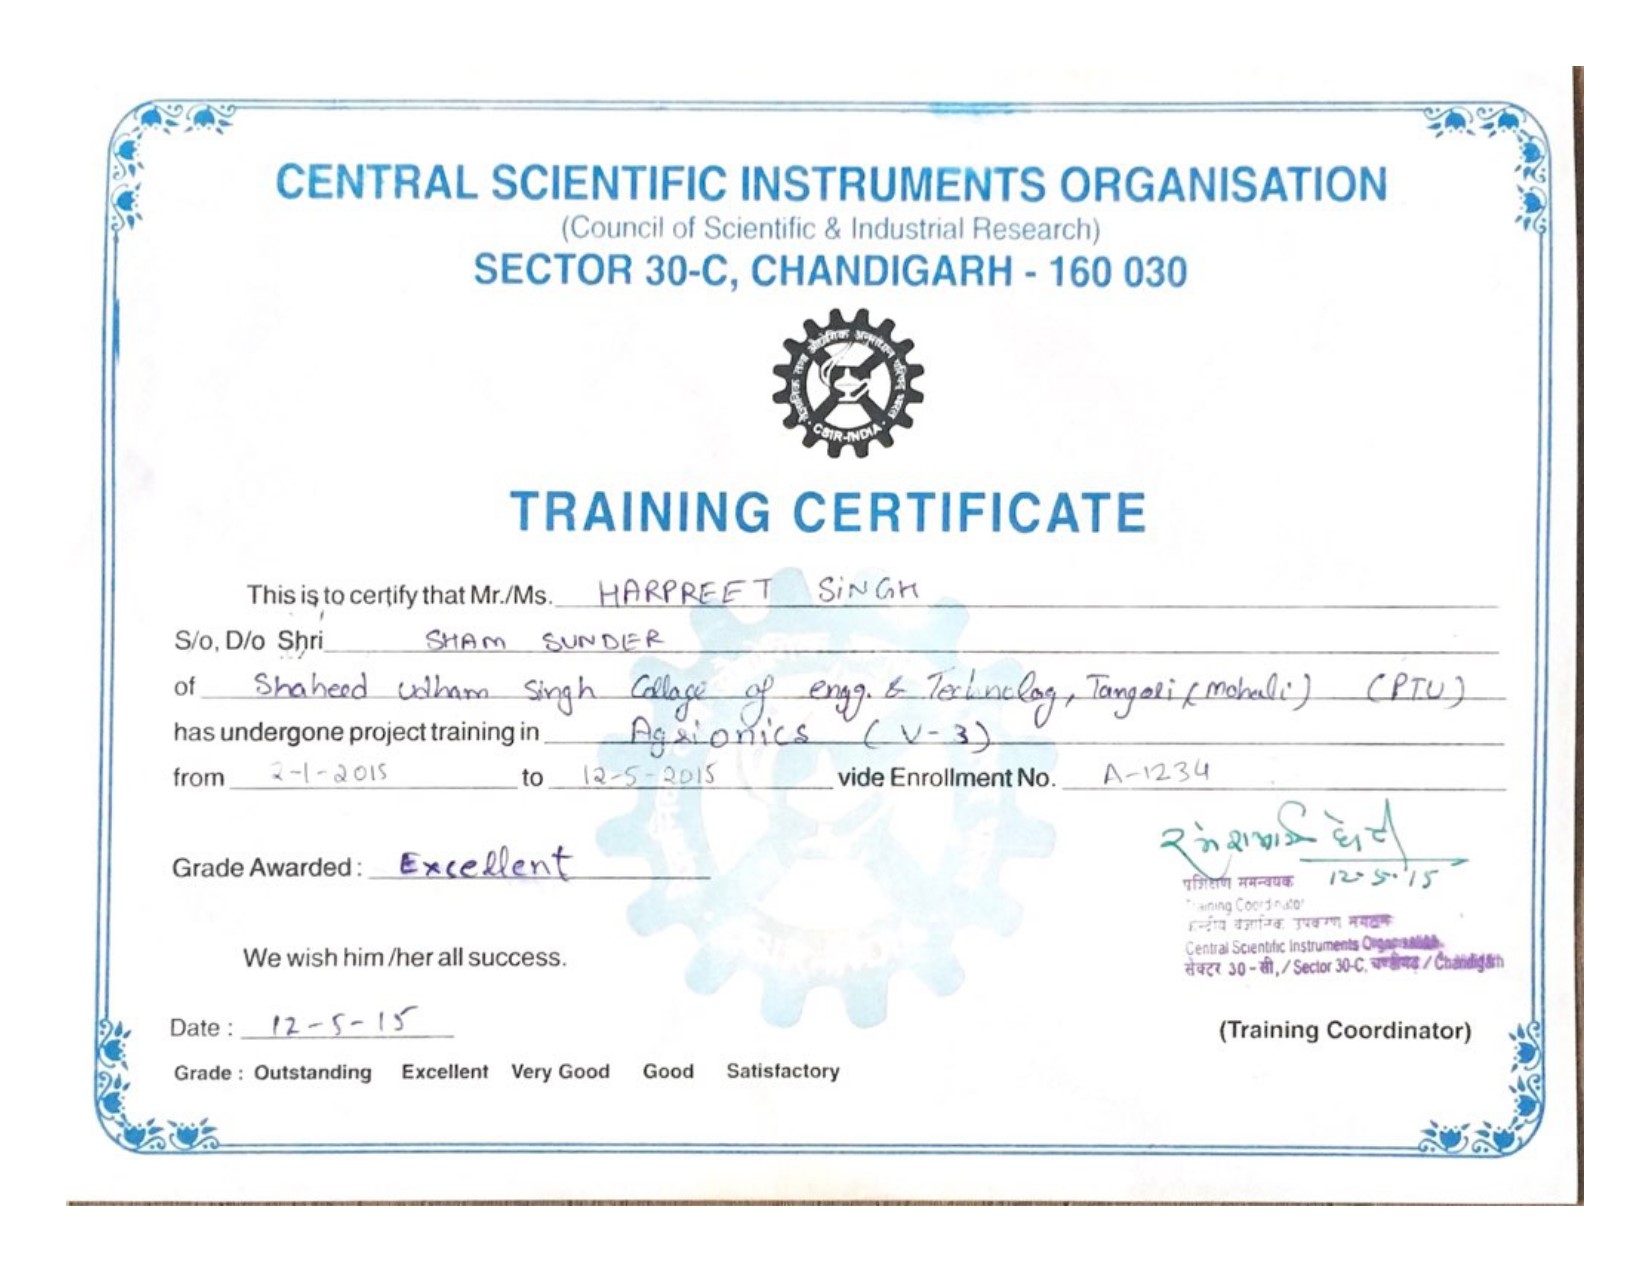 CENTRAL SCIENTIFIC INSTRUMENTS ORGANISATION
(Council of Scientific & Industrial Research)
SECTOR 30-C, CHANDIGARH - 160 030
वैज्ञानिक तथा औद्योगिक अनुसंधान परिषद भारत
CSIR-INDIA
TRAINING CERTIFICATE
This is to certify that Mr./Ms. HARPREET SiNGH
S/o, D/o Shri SHAM SUNDER
of Shaheed Udham Singh Collage of engg. & Technolog, Tangori (Mohali) (PTU)
has undergone project training in Agrionics (V-3)
from 2-1-2015 to 12-5-2015 vide Enrollment No. A-1234
Grade Awarded : Excellent
12.5.15
Training Coordinator
Central Scientific Instruments Organisation.
सेक्टर 30 - सी, / Sector 30-C, चण्डीगढ़ / Chandigarh
We wish him /her all success.
Date : 12-5-15
(Training Coordinator)
Grade : Outstanding Excellent Very Good Good Satisfactory